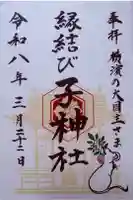 奉拝 横濱の大国主さま
縁結び
子神社
令和八年三月二十二日